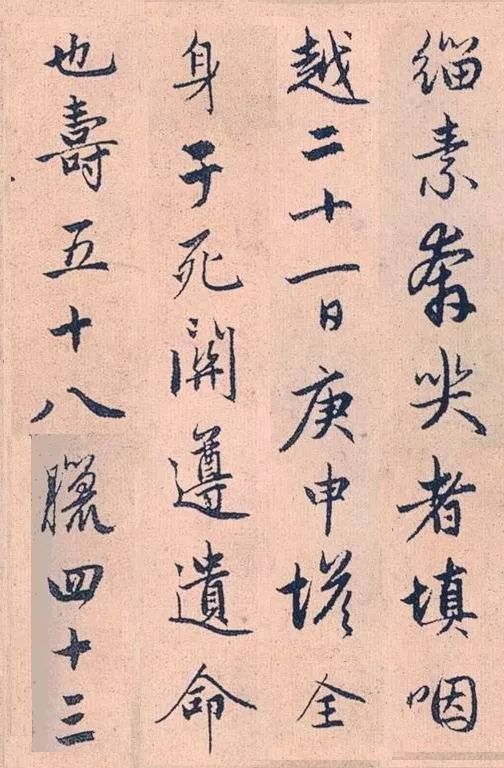 緇素奔哭者填咽
越二十一日庚申塔全
身于死關遵遺命
也壽五十八臘四十三